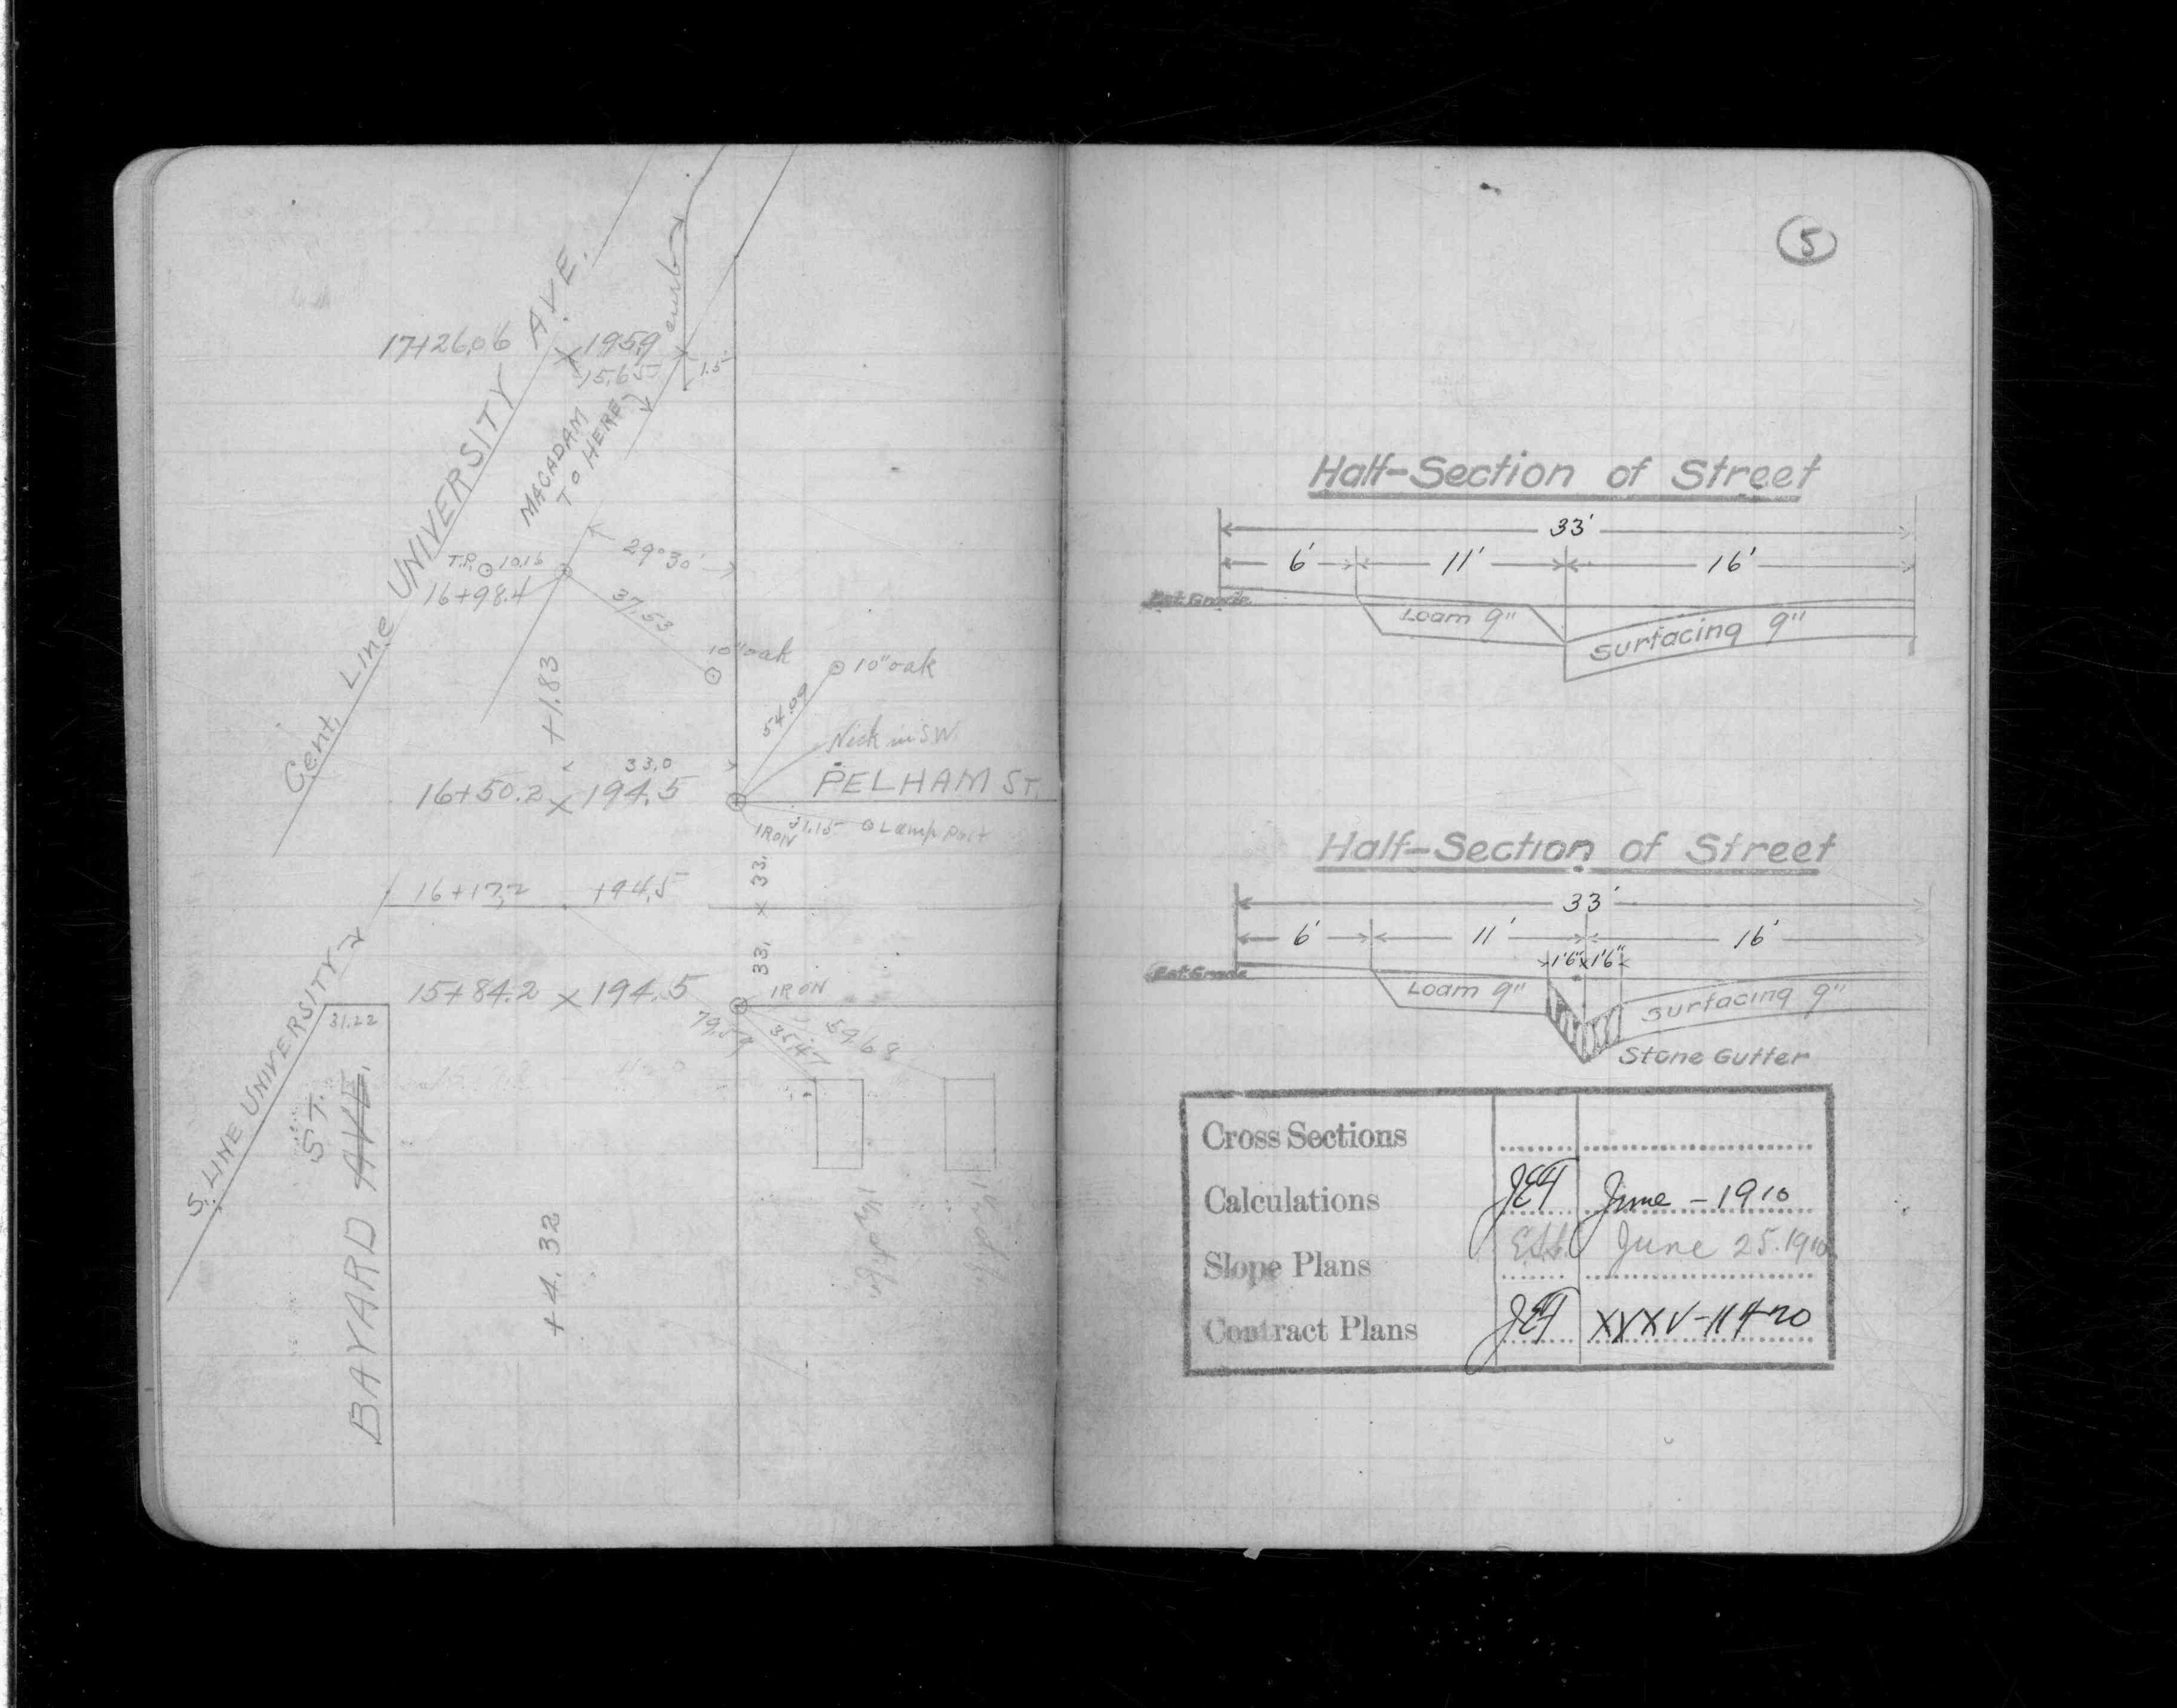 17+26.06 × 195.9
15.65
1.5
curb
Cent. Line UNIVERSITY AVE.
MACADAM
TO HERE
T.P. 10.16
16+98.4
29°30'
37.53
10" oak
10" oak
54.09
+1.83
Nick in SW.
33.0
16+50.2 × 194.5
PELHAM ST.
IRON 31.15 Lamp Post
33. × 33.
16+17.2 +94.5
S. LINE UNIVERSITY
15+84.2 × 194.5
IRON
31.22
79.59
35.47
59.68
BAYARD AVE.
ST.
+4.32
5
Half-Section of Street
33'
6' 11' 16'
Est. Grade
Loam 9"
Surfacing 9"
Half-Section of Street
33'
6' 11' 16'
1'6" × 1'6"
Est. Grade
Loam 9"
Surfacing 9"
Stone Gutter
Cross Sections
Calculations June - 1910
June 25. 1910
Slope Plans
Contract Plans